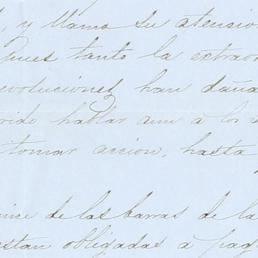 y llama su atension
Pues tanto la extraor
evoluciones han daña
hablar aun a los
tomar accion, hasta
de las barras de la
estan obligadas á pag